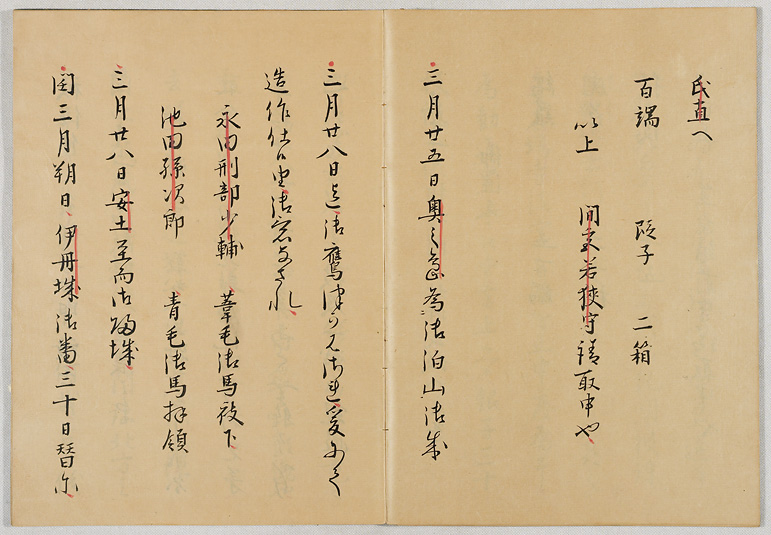 氏直へ
百端　段子　二箱
以上　間宮若狭守請取申也
三月廿五日奥之嶋為御泊山御成
三月廿八日迄御鷹津かハされ
造作仕候由御
永田刑部少輔　葦毛御馬被下
池田孫次郎　青毛御馬拝領
三月廿八日安土至而御帰城
閏三月朔日伊丹城御番三十日替尓